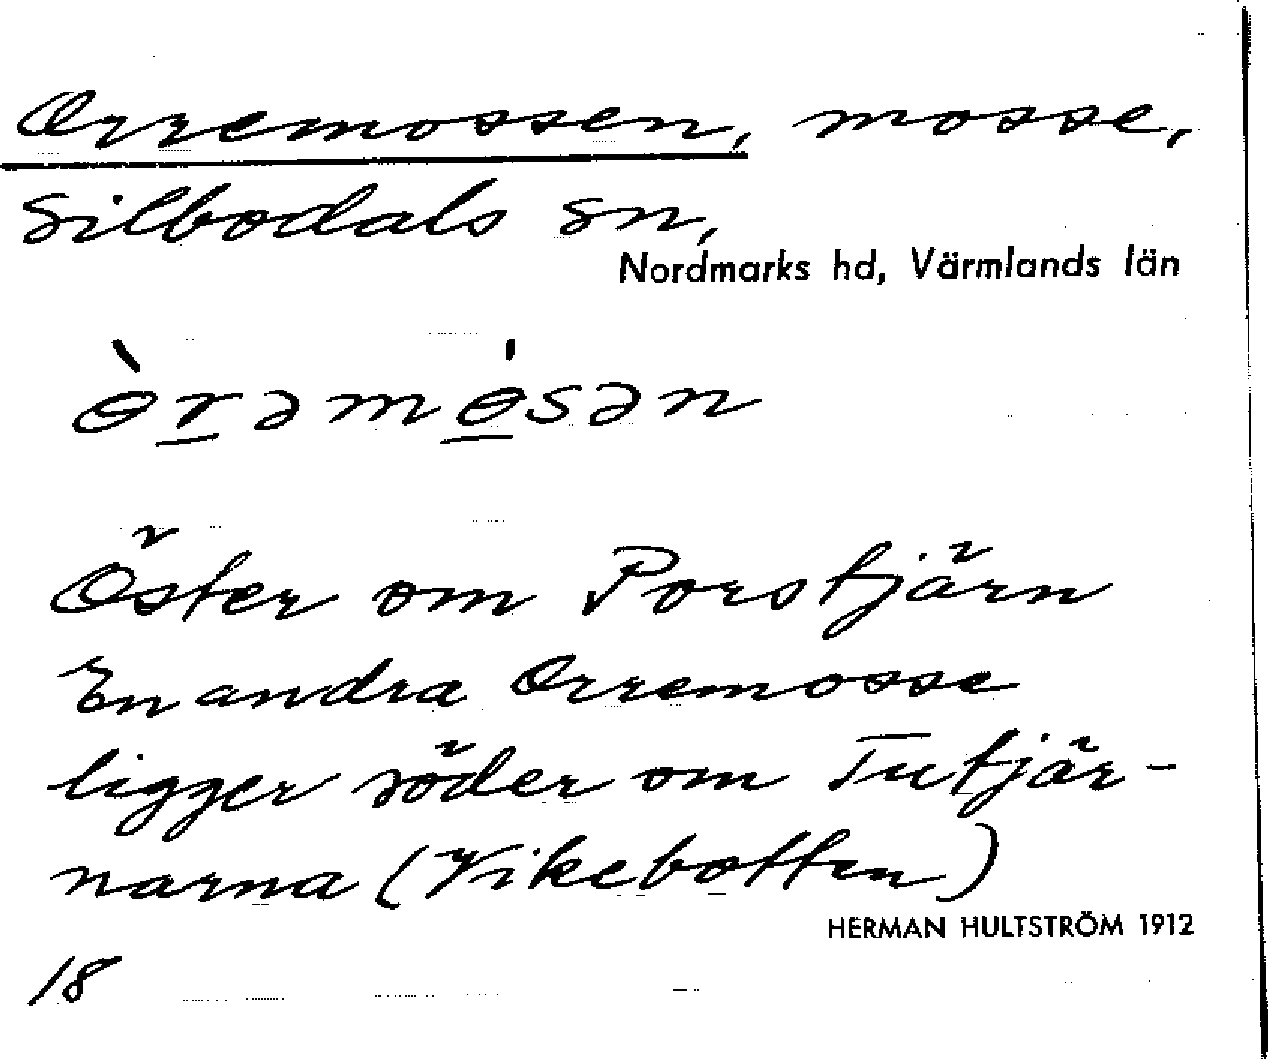 Orremossen, mosse,
Silbodals sn,
Nordmarks hd, Värmlands län
ɵ̀r̲əmɵ̲́sən
Öster om Porstjärn
En andra Orremosse
ligger söder om Tutjär-
narna (Vikebotten)
HERMAN HULTSTRÖM 1912
18